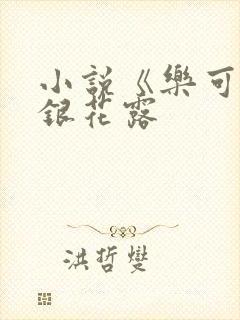 小說《樂可
銀花露
洪哲燮